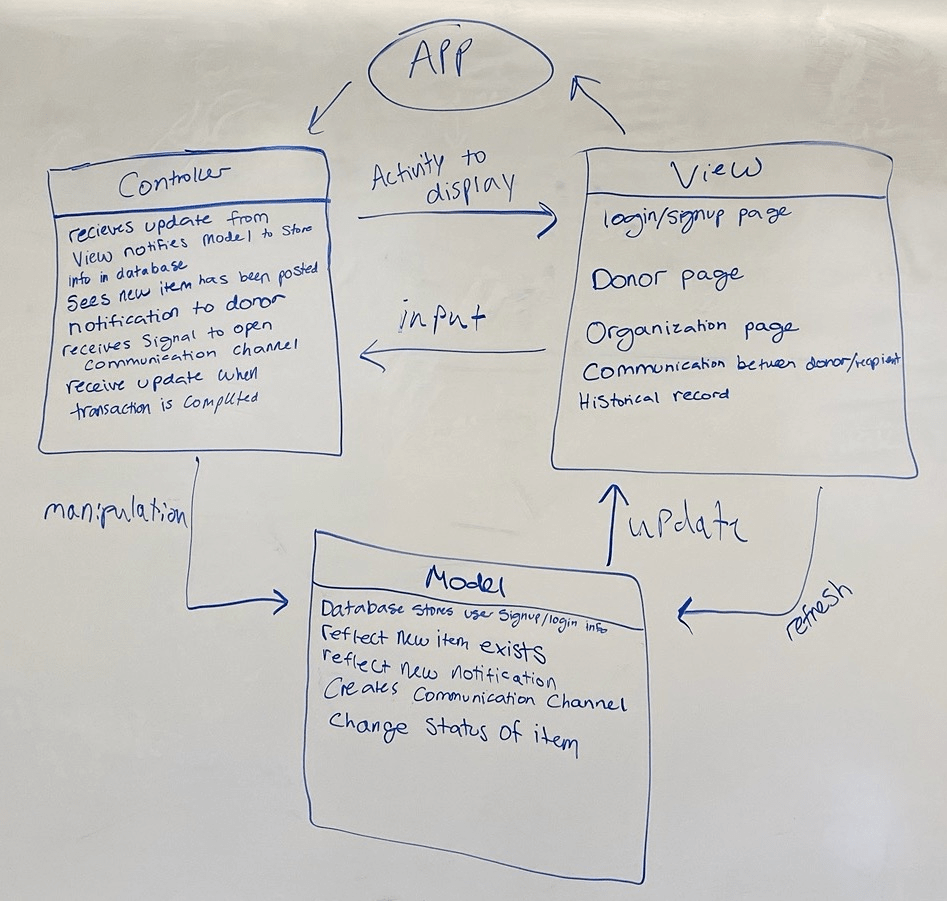 APP
Controller
recieves update from
View notifies model to store
info in database
Sees new item has been posted
notification to donor
receives Signal to open
communication channel
receive update when
transaction is completed
Activity to
display
input
View
login/signup page
Donor page
Organization page
Communication between donor/recipient
Historical record
manipulation
update
refresh
Model
Database stores use signup/login info
reflect new item exists
reflect new notification
Creates Communication Channel
Change Status of item